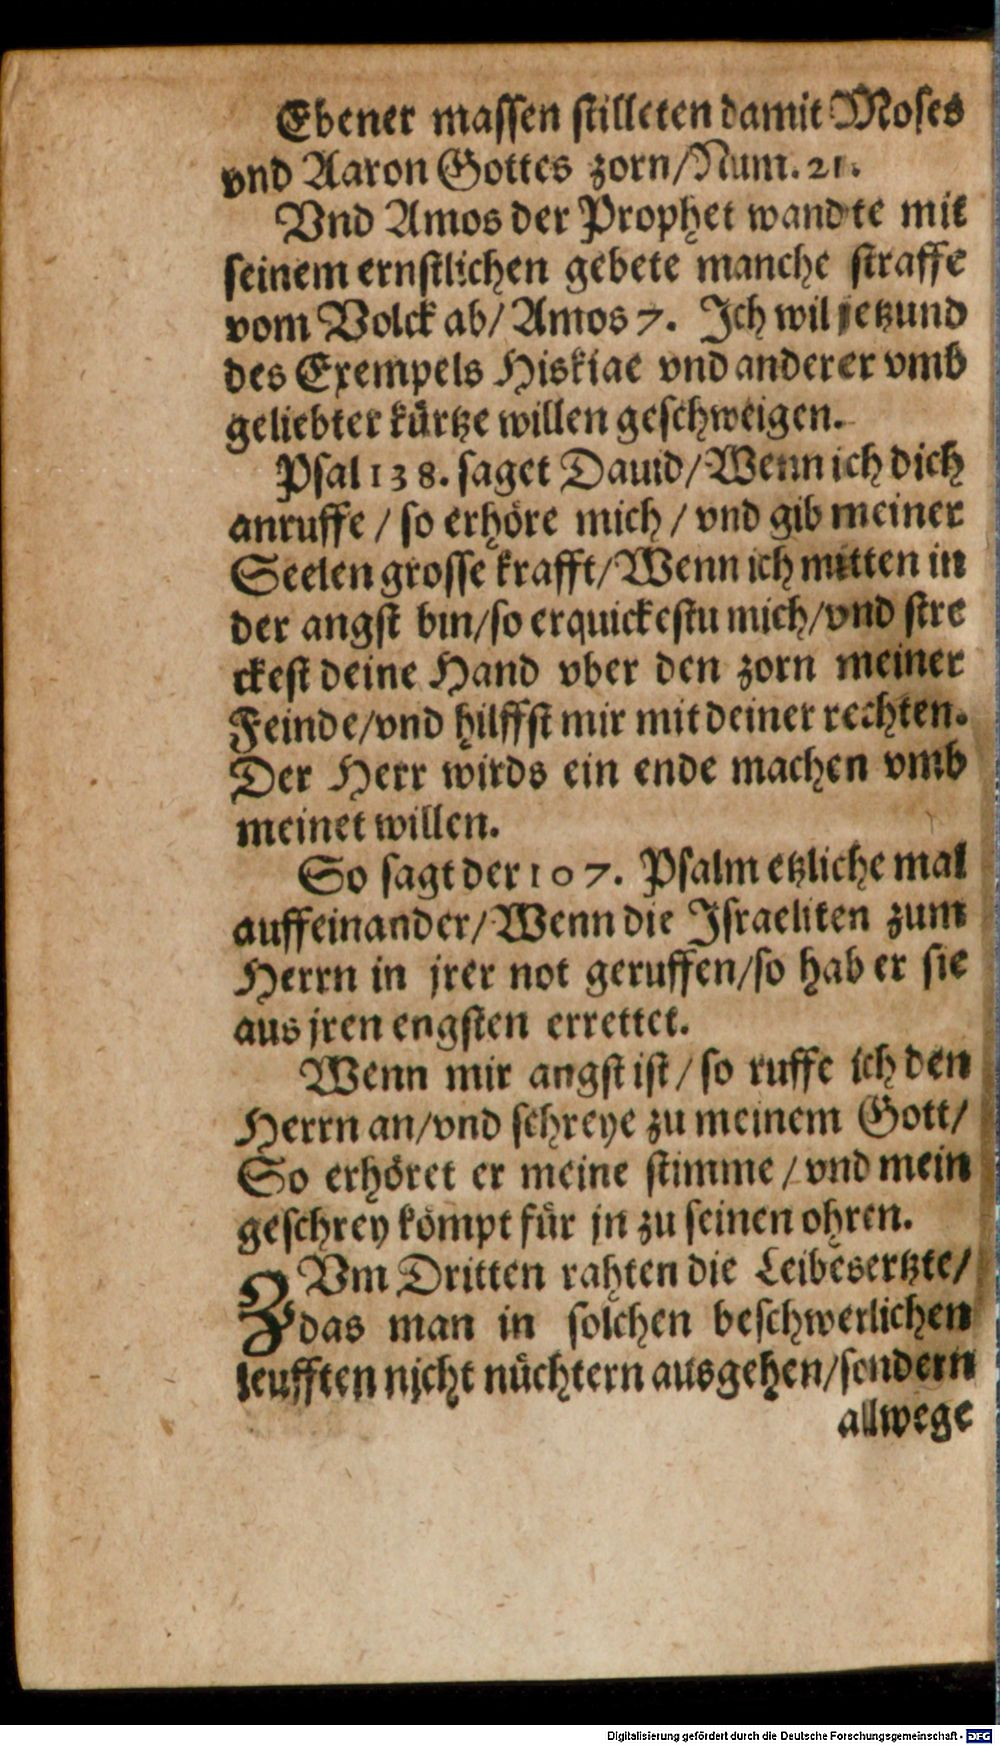 Ebener massen stilleten damit Moses
vnd Aaron Gottes zorn/Num. 21.
Vnd Amos der Prophet wandte mit
seinem ernstlichen gebete manche straffe
vom Volck ab/ Amos 7. Ich wil jetzund
des Exempels Hiskiae vnd anderer vmb
geliebter kürtze willen geschweigen.
Psal 138. saget Dauid/Wenn ich dich
anruffe / so erhöre mich / vnd gib meiner
Seelen grosse krafft/Wenn ich mitten in
der angst bin/so erquickestu mich/vnd stre
ckest deine Hand vber den zorn meiner
Feinde/vnd hilffst mir mit deiner rechten.
Der Herr wirds ein ende machen vmb
meinet willen.
So sagt der 107. Psalm etzliche mal
auffeinander/Wenn die Israeliten zum
Herrn in jrer not geruffen/so hab er sie
aus jren engsten errettet.
Wenn mir angst ist / so ruffe ich den
Herrn an/vnd schreye zu meinem Gott/
So erhöret er meine stimme / vnd mein
geschrey kömpt für jn zu seinen ohren.
ZVm Dritten rahten die Leibesertzte/
das man in solchen beschwerlichen
leufften nicht nüchtern ausgehen/sondern
allwege
Digitalisierung gefördert durch die Deutsche Forschungsgemeinschaft - DFG